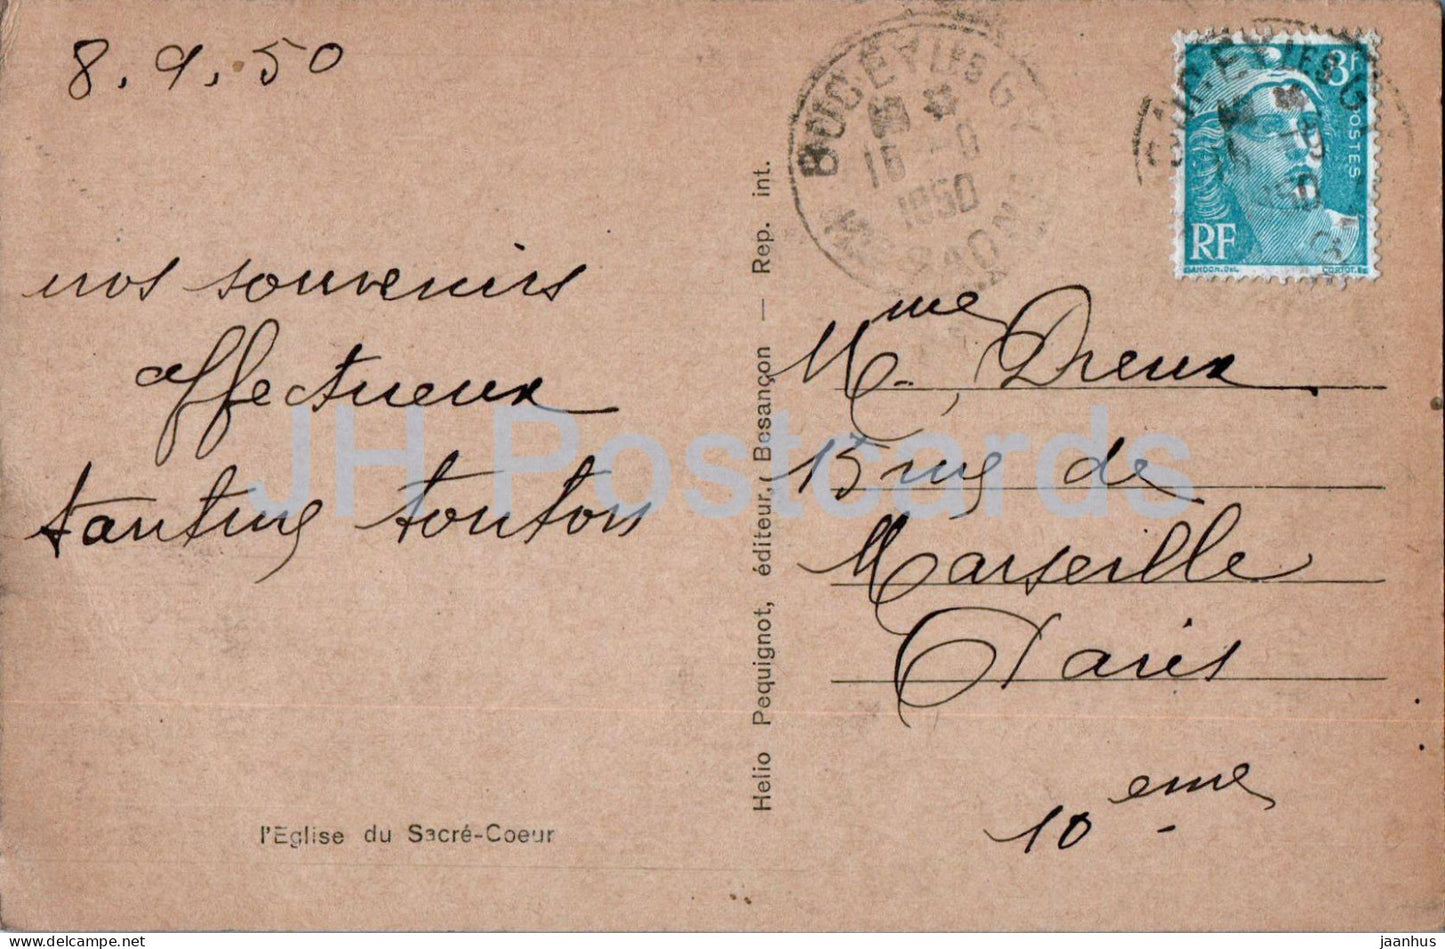 8.9.50
nos souvenirs
affectueux
tantine tonton
l'Eglise du Sacré-Coeur
Helio Pequignot, éditeur, Besançon — Rep. int.
BUCEY LES GY
1950
3F
POSTES
RF
GANDON.DEL
CORTOT.SC
Mme. Dreux
15 rue de
Marseille
Paris
10eme
JH Postcards
delcampe.net
jaanhus